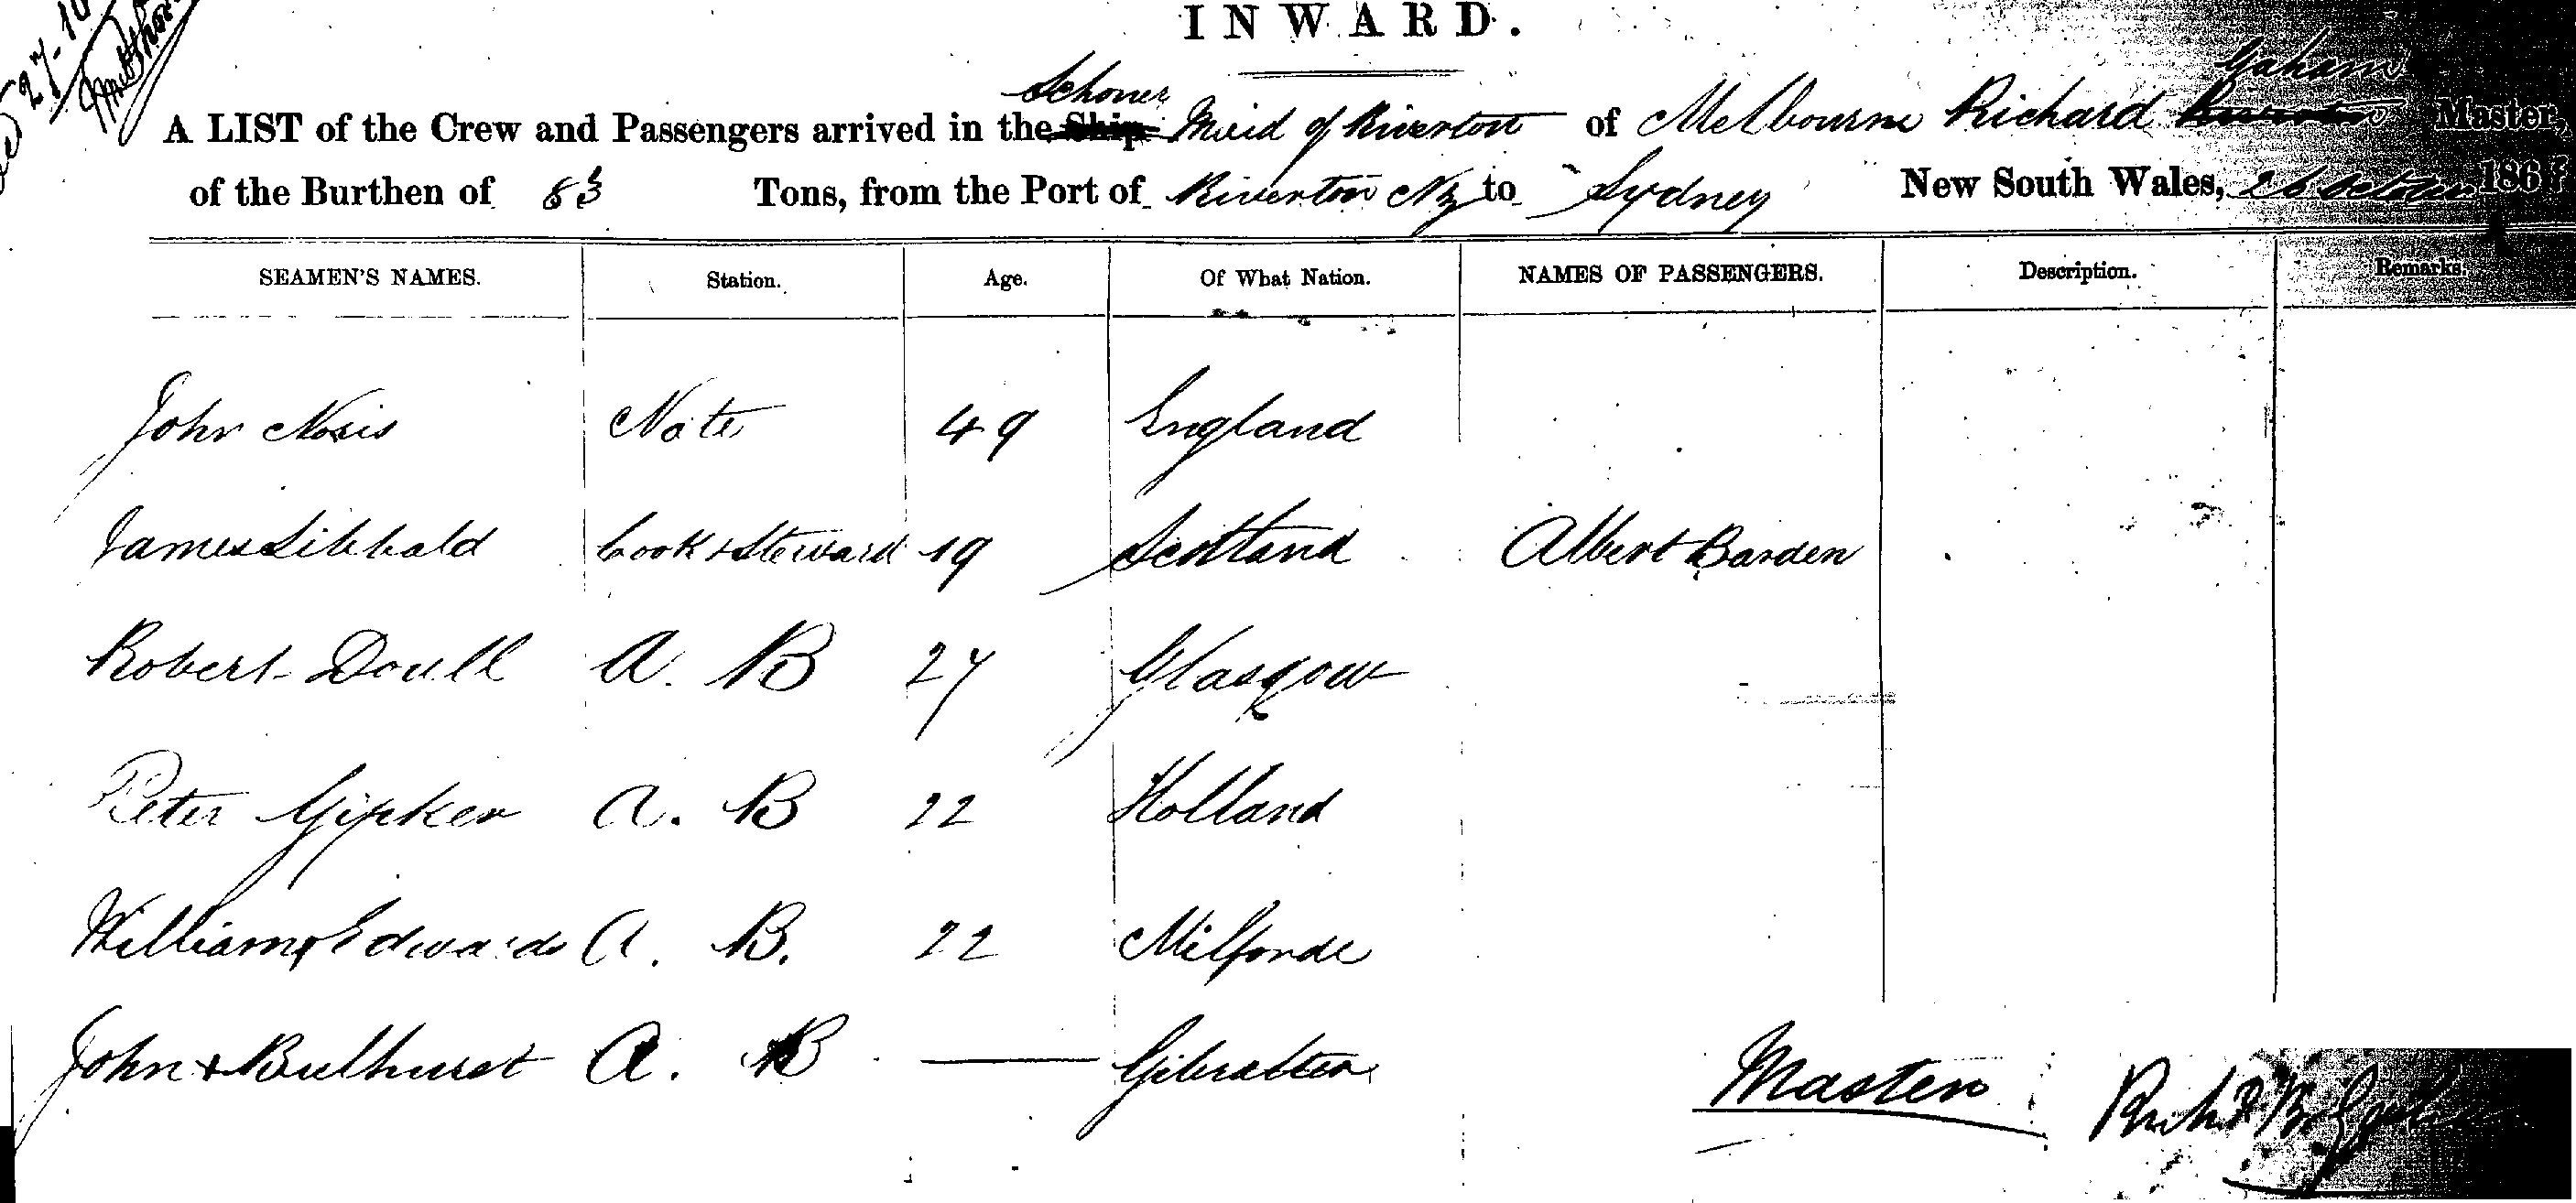 27-10
INWARD.
Schoner Graham
A LIST of the Crew and Passengers arrived in the Ship Maid of Riverton of Melbourne Richard Riverton Master,
of the Burthen of 83 Tons, from the Port of Riverton NZ to Sydney New South Wales, 26 October 186
SEAMEN'S NAMES. Station. Age. Of What Nation. NAMES OF PASSENGERS. Description. Remarks.
John Nosis Mate 49 England
James Sibbald Cook & Steward 19 Scotland Albert Barden
Robert Doull A. B 27 Glasgow
Peter Gipker A. B 22 Holland
William Edwards A. B. 22 Milforde
John Bulhurst A. B — Gibralter
Master